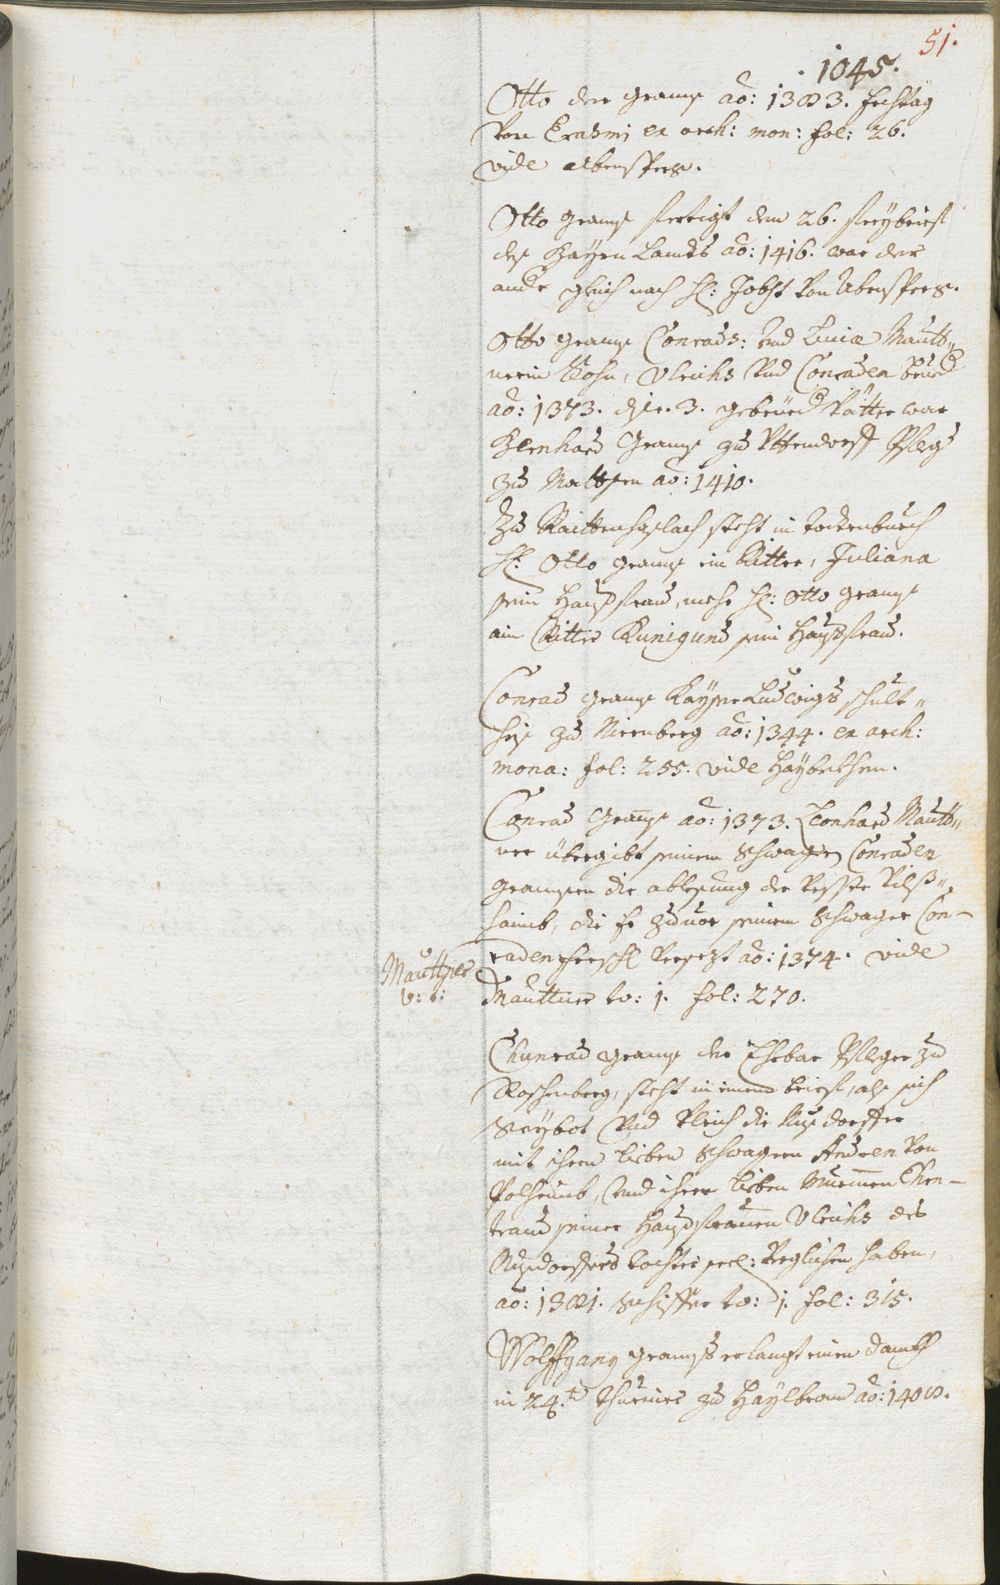 51.
1045.
Otto der Grans ao: 1383. Fichtag
von Erasmi ex arch: mon: fol: 26.
vide Abensperg.
Otto Grans fertigt den 26. freybrief
des Bayrn Landts ao: 1416. war der
ander gleich nach H: Jobst von Abensperg.
Otto Grans Conrads: und Luciæ Mautt„
nerin Sohn, Ulrichs und Conraden brued
ao: 1373. diser. 3. gebrüed Vätter war
Bernhard Grans zu Uttendorff Pfleg
zu Mattsen ao: 1410.
Zu Raittenhaslach steht in Todtenbuech
H: Otto Grans ein Ritter, Juliana
sein Hausfrau, mehr H: Otto Grans
ain Ritter Kunigund sein Hausfrau.
Conrad Grans Kayser Ludwigs schult„
heis zu Nirenberg ao: 1344. ex arch:
mona: fol: 255. vide Haybekhen.
Conrad Grans ao: 1373. Leonhard Mautt„
ner übergibt seinem Schwagern Conraden
Gransen die ablesung der Vesste
haimb, die er zuvor seinem Schwager Con-
raden versezt ao: 1374. vide
Mauttner to: 1. fol: 270.
Mauttner
v: 6:
Chunrad Grans der Erbar Pfleger zu
Roshenberg, steht in einem brief, als sich
Seybot und Ulrich die Nusdorffer
mit ihren lieben Schwagern Andren von
Polhaimb, und ihrer lieben Muemen Chon-
traud seiner Hausfrauen Ulrichs des
Nusdorffers Tochter seel: verglichen haben,
ao: 1381. Schiffer to: 1. fol: 315.
Wolffgang Grans erlangt einen danckh
in 24.t Thurnier zu Haylbrunn ao: 1408.